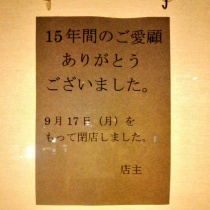 15年間のご愛顧
ありがとう
ございました。
9月17日（月）を
もって閉店しました。
店主